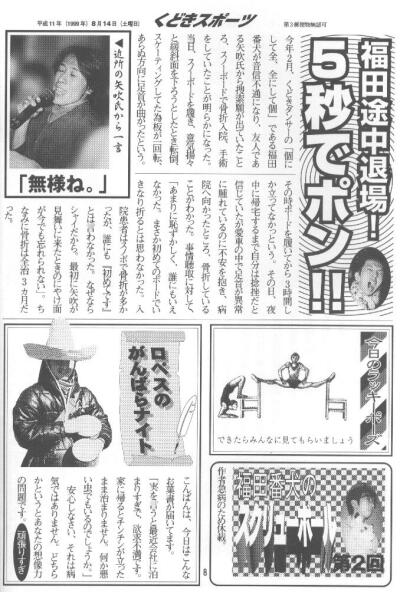 平成11年（1999年）8月14日（土曜日）
くどきスポーツ
第3種便物無認可
福田途中退場！
5秒でポン!!
今年２月、くどきダンサーの「個に
して全、全にして個」である福田
番犬が音信不通になり、友人であ
る矢吹氏から捜索願が出ていたこと
が明らかになった。
スノーボードで骨折入院、手術
をしていたことが明らかになった。
当日、スノーボードを履き、意気揚々
と緩斜面を下ろうとしたとき転倒。
スケーティングしてた為板が一回転、
あらぬ方向に足首が曲がったという。
▲近所の矢吹氏から一言
「無様ね。」
その時ボードを履いてから３時間し
かたってなかったという。その日、夜
中に帰宅するまで自分は捻挫だと
信じていたが愛車の中で足首が異常
に腫れているのに不安を抱き、病
院へ向かったところ、骨折している
ことがわかった。事情聴取に対して、
「あまりに恥ずかしく、誰にもいえ
なかった。まさか初めてのボードでい
きなり折るとは思わなかった。入
院患者はスノボで骨折が多か
ったが、誰にも『初めてです』
とは言わなかった。なぜなら
シャイだから。最初に矢吹が
見舞いに来たときのにやけ面
が今でも忘れられない」。ち
なみに骨折は全治３ヵ月だ
った。
ロペスの
がんばらナイト
こんばんは、今日はこんな
お葉書が届いてます。
「実を言うと最近会社に泊
まりすぎで、欲求不満です。
家に帰るとチンチンが立った
まま治まりません。何か悪
い虫でもいるのでしょうか。」
安心しなさい、それは病
気ではありません。どちら
かというとあなたの想像力
の問題です。
頑張りすぎ
今日のラッキーポーズ
できたらみんなに見てもらいましょう
福田番犬の
スクリューボール
第2回
作者急病のため休載。
8